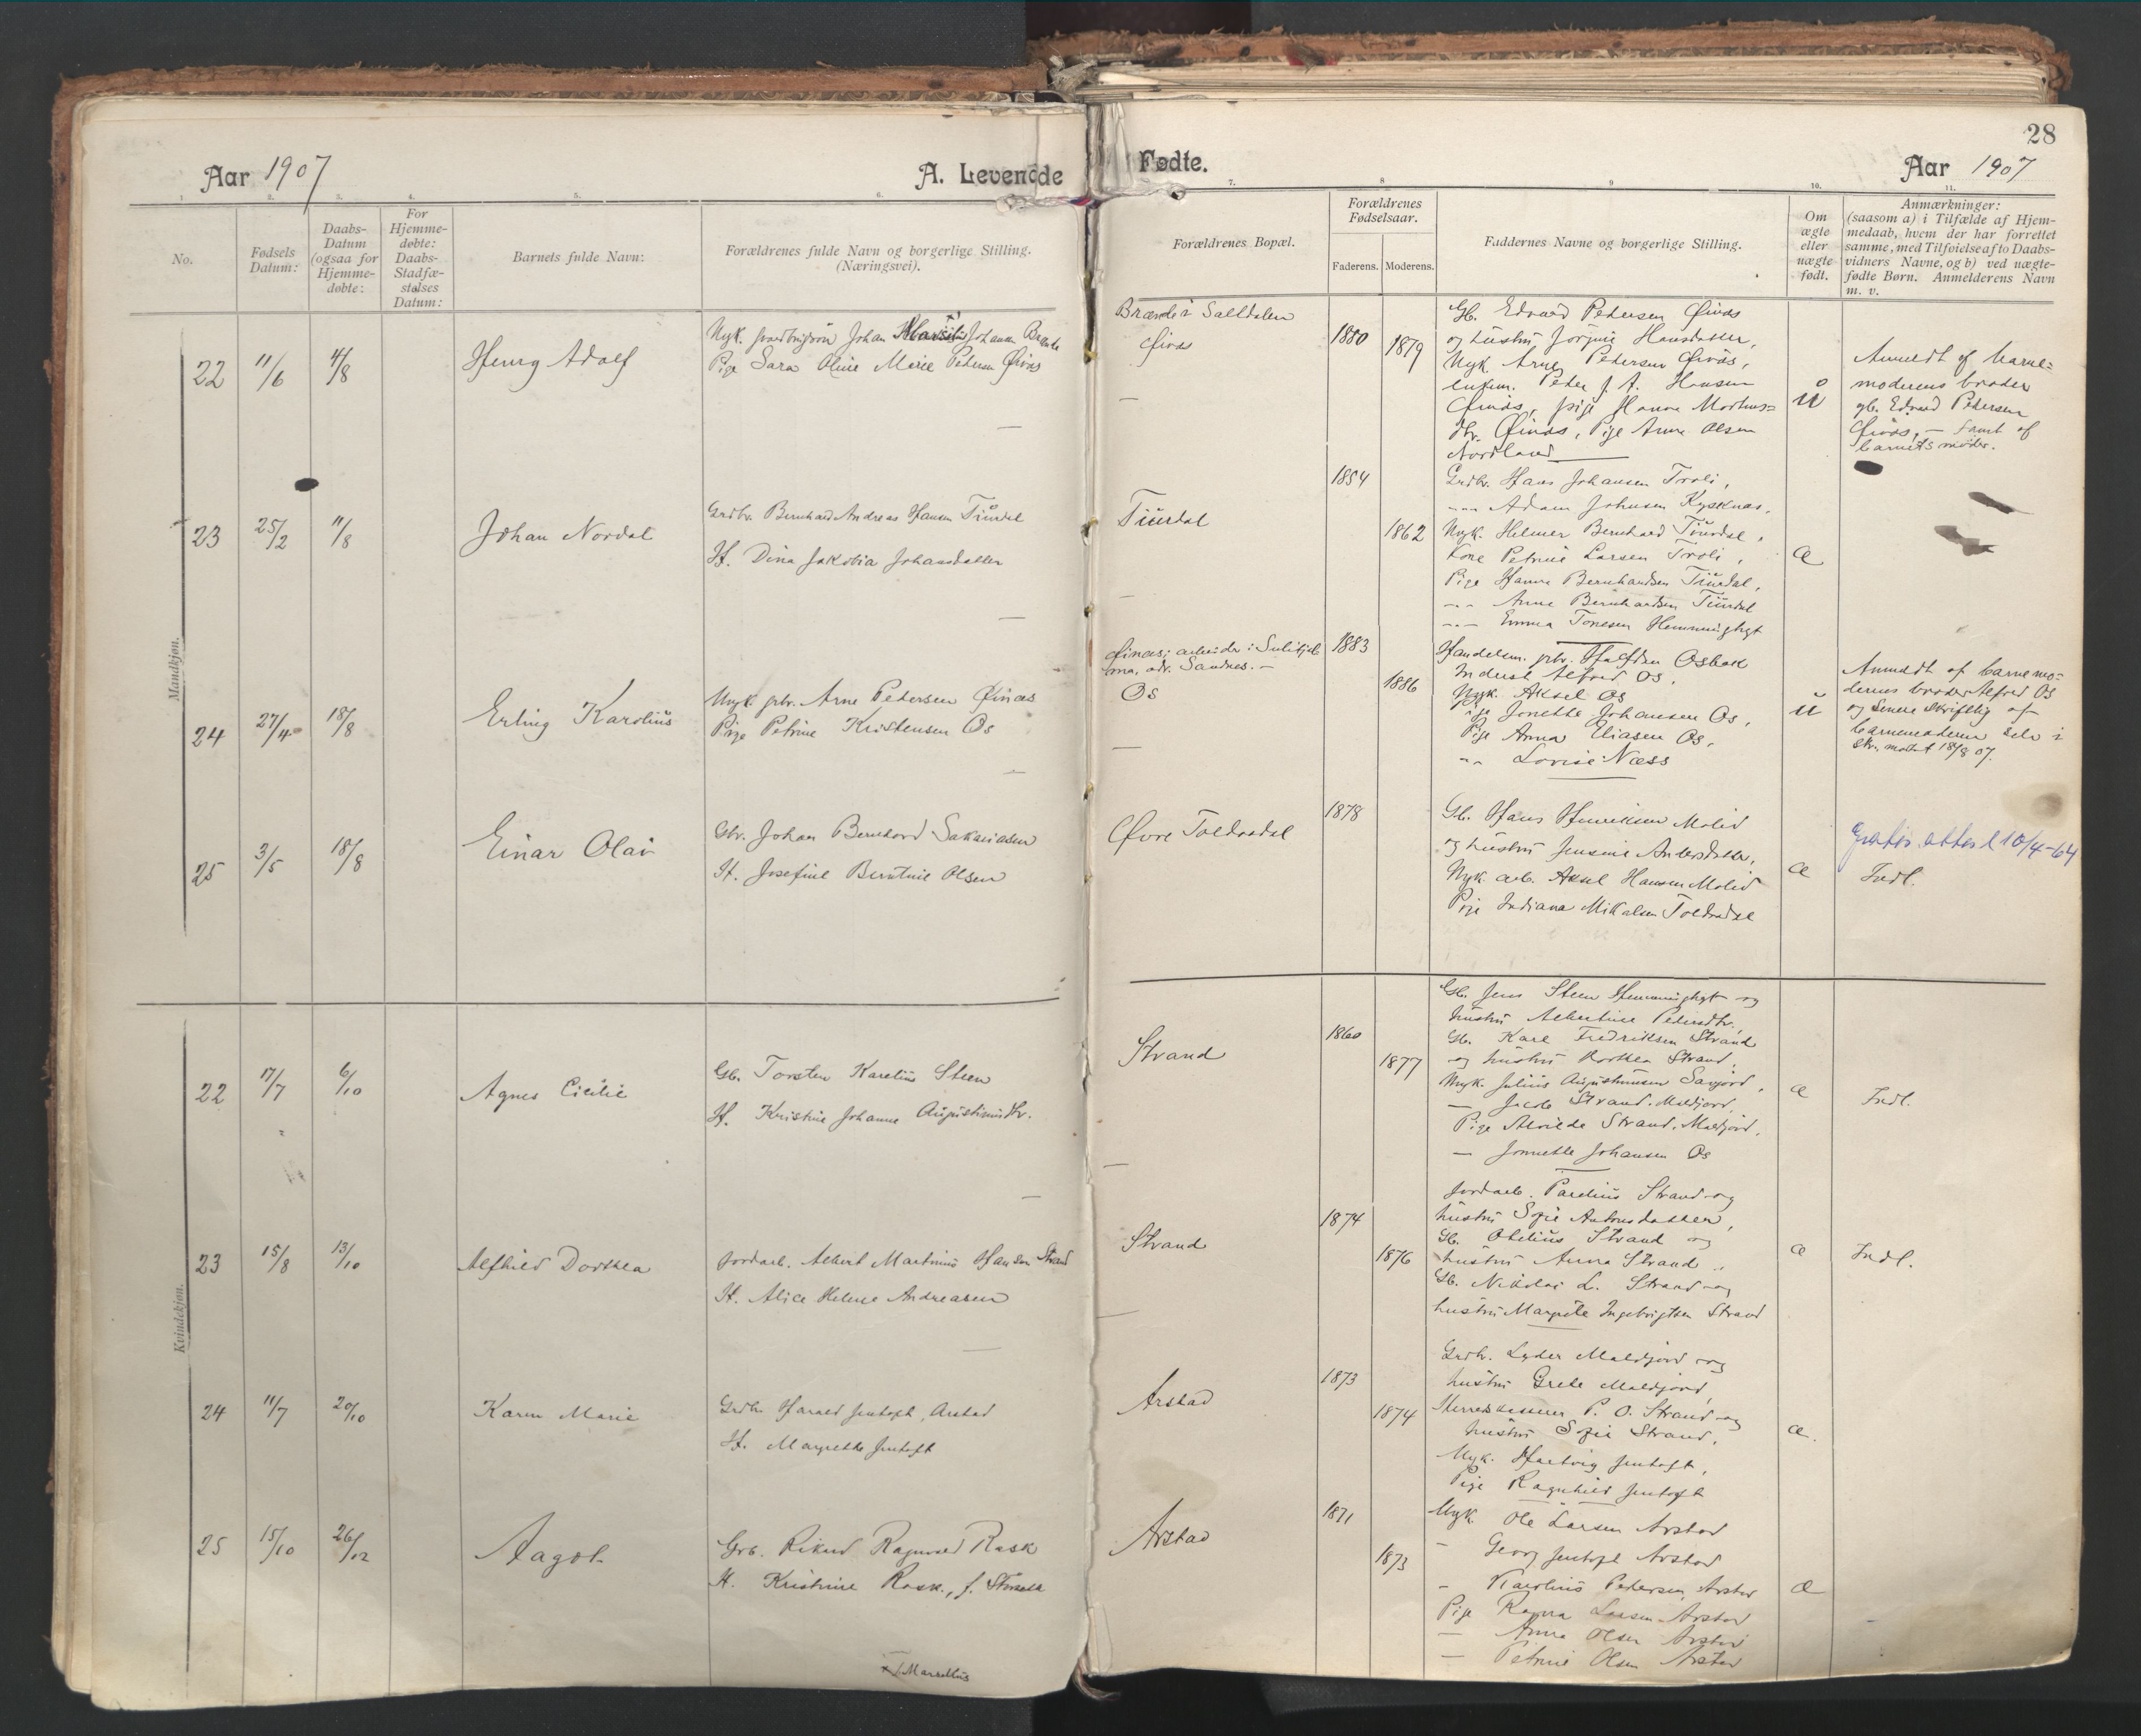 28
Aar 1907
A. Levende
Fødte.
Aar 1907
1. 2. 3. 4. 5. 6. 7. 8 9 10. 11.
No.
Fødsels Datum:
Daabs-Datum (ogsaa for Hjemme-døbte:
For Hjemme-døbte: Daabs-Stadfæ-stelses Datum:
Barnets fulde Navn:
Forældrenes fulde Navn og borgerlige Stilling.
(Næringsvei).
Forældrenes Bopæl.
Forældrenes Fødselsaar.
Faderens. Moderens.
Faddernes Navne og borgerlige Stilling.
Om ægte eller uægte født.
Anmærkninger:
(saasom a) i Tilfælde af Hjem-
medaab, hvem der har forrettet
samme, med Tilføielse af to Daabs-
vidners Navne, og b) ved uægte-
fødte Børn. Anmelderens Navn
m. v.
Mandkjøn.
22 11/6 4/8 Henry Adolf
Ungk. Johan Johansen
Pige Sara Oline Marie Petersen Øinæs
Brænde i Saltdalen
Øinæs
1880
1879
Gb. Edvard Petersen Øinæs
og hustru Jørgine Hansdatter,
Ungk. Arne Petersen Øinæs,
Peter J. A. Hansen
Øinæs, pige Hanna
Øinæs, Pige Anna Olsen
Nordland
u
Anmeldt af barne-
moderens broder
gb. Edvard Petersen
Øinæs, - samt af
barnets moder.
23 25/2 11/8 Johan Nordal
Grdbr. Bernhard Andreas Hansen Tiurdal
H. Dina Jakobia Johansdatter
Tiurdal
1854
1862
Grdbr. Hans Johansen Troli,
Adam Johnsen
Ungk. Helmer Bernhard Tiurdal,
Kone Petrine Larsen Troli,
Pige Hanna Bernhardsen Tiurdal,
Anna Bernhardsen Tiurdal
Emma Tonesen
æ
24 27/4 18/8 Erling Karolius
Ungk. gbr. Arne Petersen Øinæs
Pige Petrine Kristensen Os
Øinæs; arbeider i Sulitjel-
ma, adr. Sandnes. -
Os
1883
1886
Handelsm. gbr. Halfdan Osbak
Indust. Alfred Os,
Ungk. Aksel Os
Pige Jonette Johansen Os,
Pige Anna Eliasen Os,
Lovise Næss
u
Anmeldt af barnemo-
derens broder Alfred Os
og senere skriftlig af
barnemoderen selv i
18/8 07.
25 3/5 18/8 Einar Olai
Gbr. Johan Bernhard Sakariasen
H. Josefine Berntine Olsen
Øvre Toldaadal
1878
Gb. Hans Henriksen Molid
og hustru Jensine Andersdatter,
Ungk. arb. Aksel Hansen Molid
Pige Indiana Mikalsen Toldaadal
æ
Gratis attest 10/4-64
Indl.
Kvindekjøn.
22 17/7 6/10 Agnes Cicilie
Gb. Torsten Karelius Steen
H. Kristine Johanne Augustinusdtr.
Strand
1860
1877
Gb. Jens Steen og
hustru Albertine Pedersdtr.,
Gb. Karl Fredriksen Strand
og hustru Dorthea Strand,
Ungk. Julius Augustinussen
Jacob Strand, Maldjord,
Pige Alvilde Strand, Maldjord,
Jonnette Johansen Os
æ
Indl.
23 15/8 13/10 Alfhild Dorthea
Jordarb. Albert Martinius Hansen Strand
H. Alice Helene Andreasen
Strand
1874
1876
Jordarb. Parelius Strand og
hustru Sofie Antonsdatter,
Gb. Otelius Strand og
hustru Anna Strand,
Gb. Nikolai L. Strand og
hustru Margrete Ingebrigtsen Strand
æ
Indl.
24 11/7 20/10 Karen Marie
Grdbr. Harald Jentoft, Arstad
H. Margrethe Jentoft
Arstad
1873
1874
Grdbr. Lyder Maldjord og
hustru Grete Maldjord,
Herredskasserer P. O. Strand og
hustru Sofie Strand,
Ungk. Hartvig Jentoft,
Pige Ragnhild Jentoft
æ.
25 15/10 26/12 Aagot
Grb. Rikard Ragnvald Rask
H. Kristine Rask, f.
Arstad
1871
1873
Ungk. Ole Larsen Arstad
- Georg Jentoft Arstad
- Karolius Pedersen Arstad
Pige Ragna Larsen Arstad
- Anna Olsen Arstad
- Petrine Olsen Arstad
æ
x) Marselius